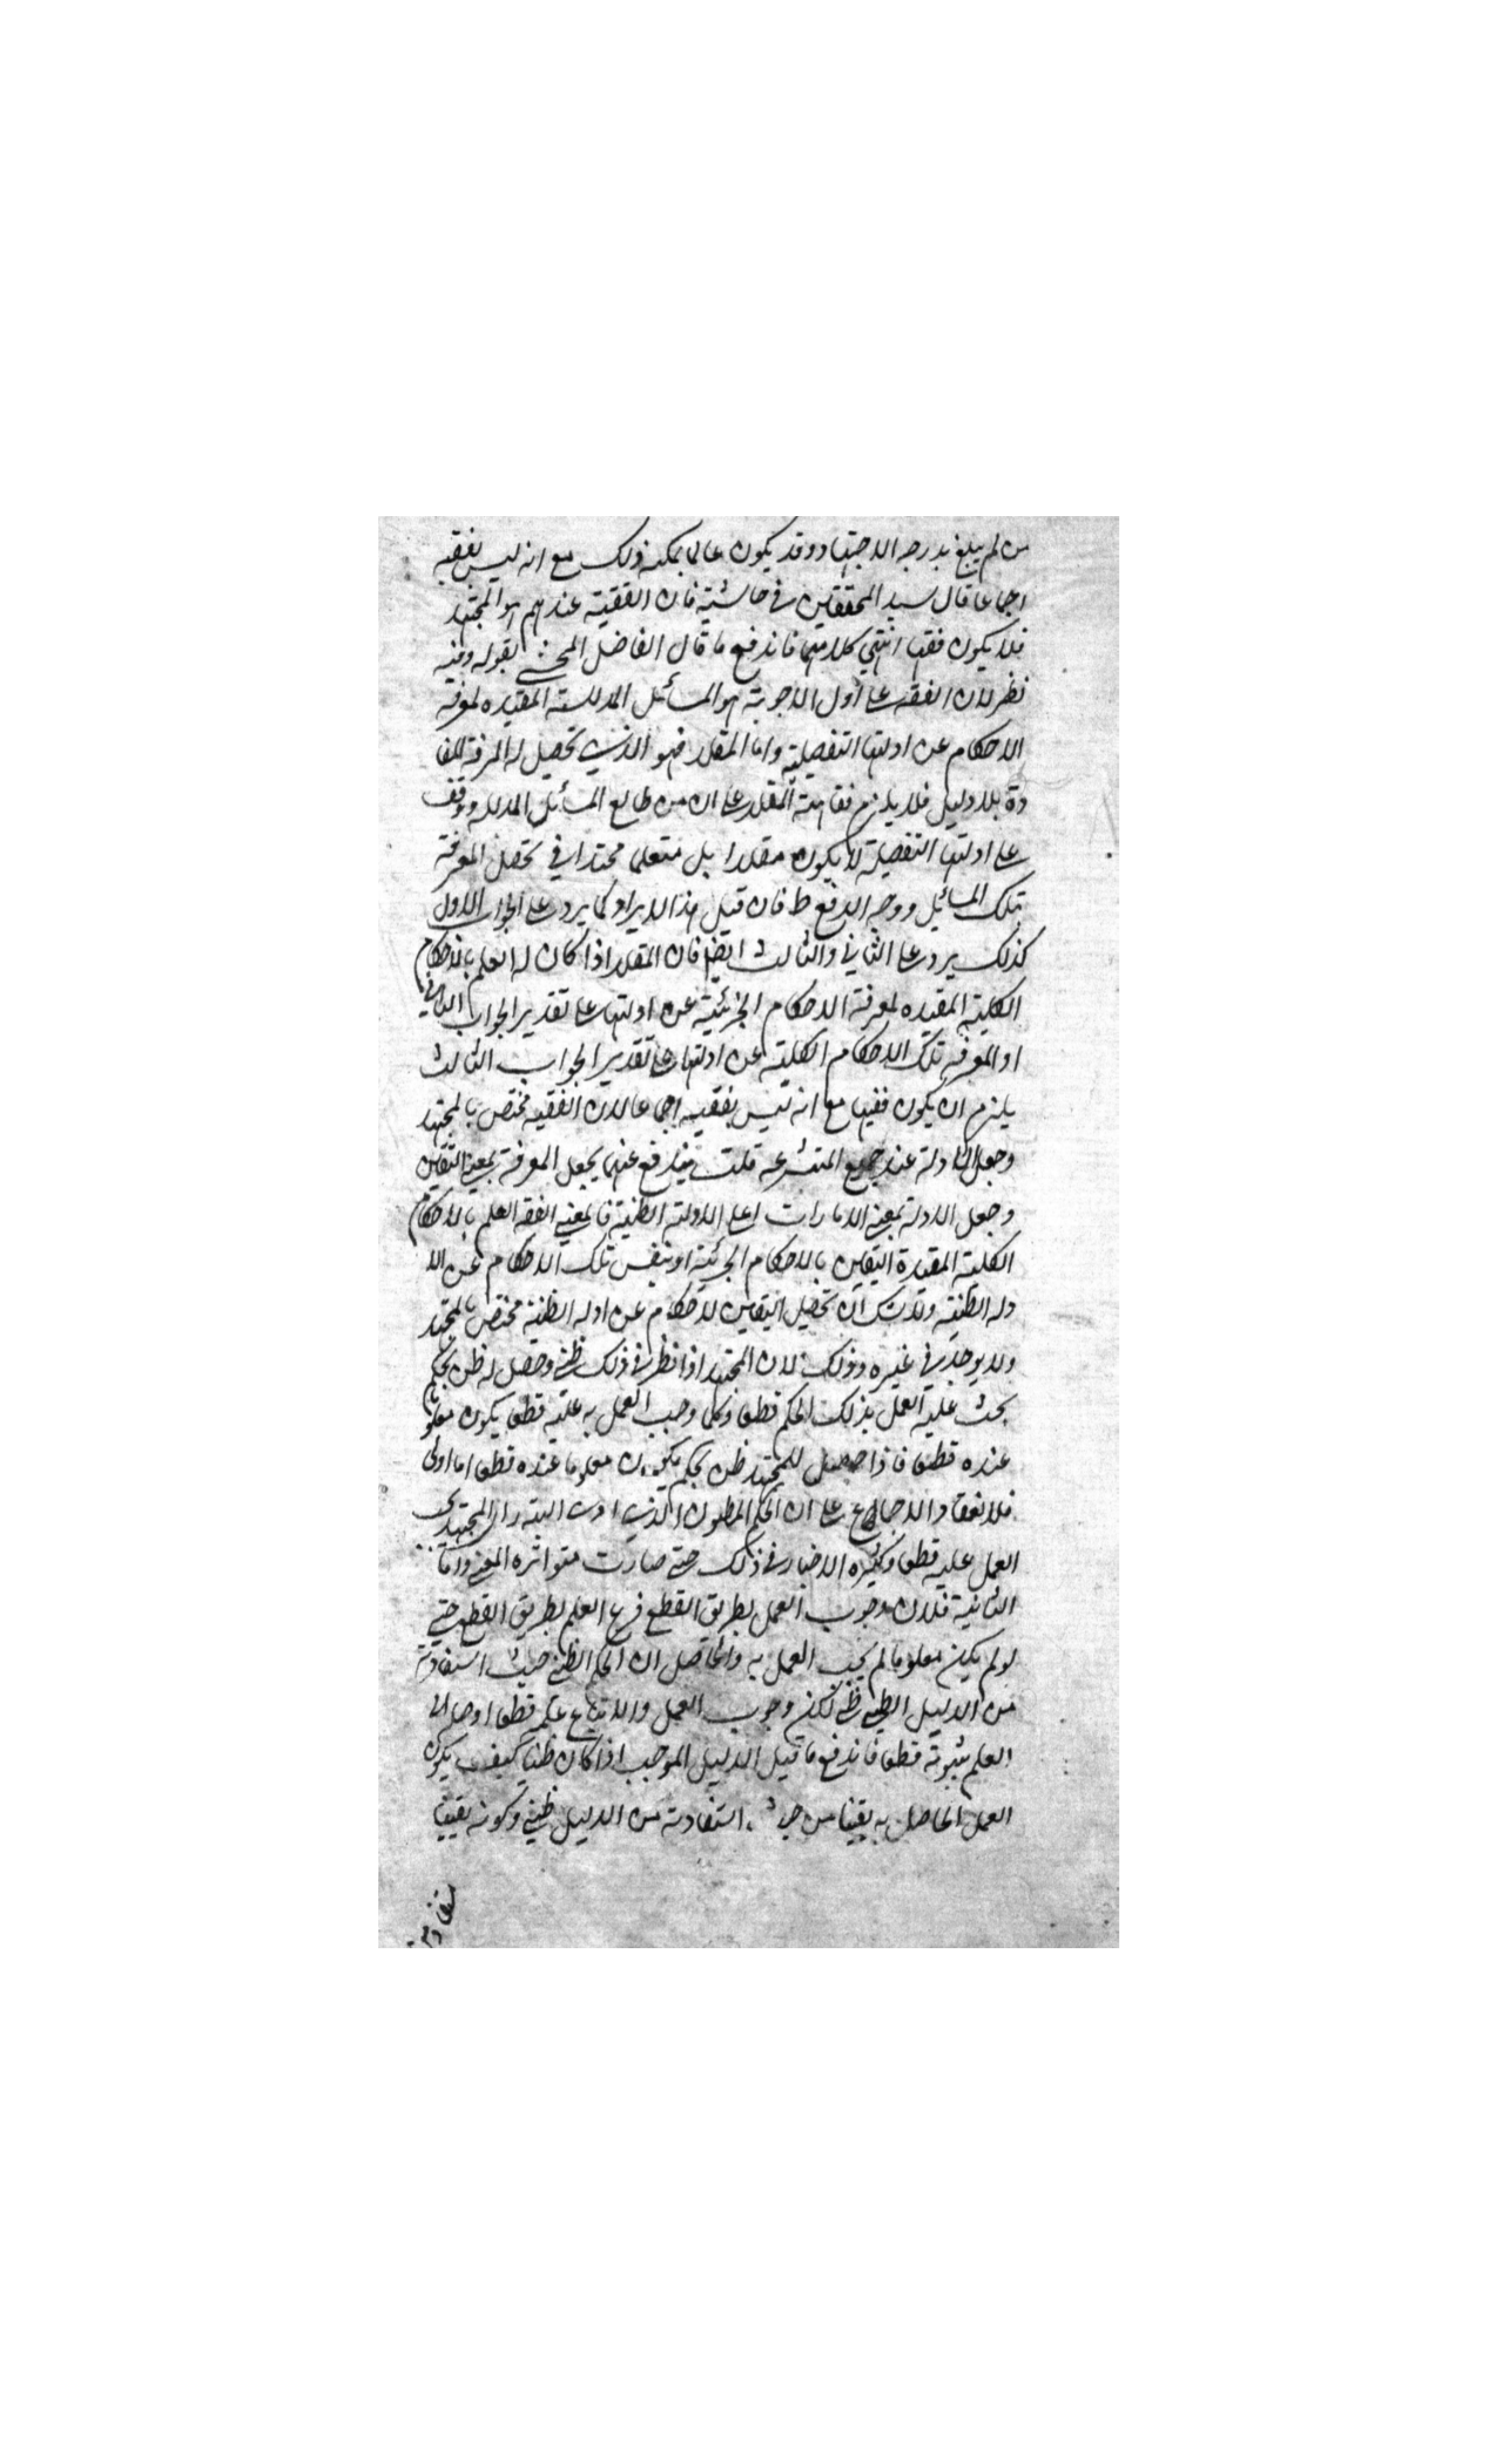 من لم يبلغ بدرجه الاجتهاد وقد يكون عالما يمكنه ذلك مع انه ليس بفقيه
اجماعا قال سيد المحققين في حاشيته فان الفقيه عندهم هو المجتهد
فلا يكون فقيها انتهي كلامهما فاندفع ما قال الفاضل المحشي بقوله وفيه
نظر لان الفقه علي اول الاجوبة هو المسائل المدللة المفيده لمعرفة
الاحكام عن ادلتها التفصيلية واما المقلد فهو الذي تحصيل له المعرفة المفا
دة بلا دليل فلا يلزم فقاهة المقلد علي ان من طالع المسائل المدلله ووقف
علي ادلتها التفصيلة لا يكون مقلدا بل متعلما مجتهدا في تحصل المعرفة
بتلك المسائل ووجه الدفع ظ فان قيل هذا الايراد كما يرد علي الجواب الاول
كذلك يرد علي الثاني والثالث ايضا فان المقلد اذا كان له العلم بالاحكام
الكلية المفيده لمعرفة الاحكام الجزئية عن ادلتها علي تقدير الجواب الثاني
او المعرفه تلك الاحكام الكلية عن ادلتها علي تقدير الجواب الثالث
يلزم ان يكون فقيها مع انه ليس بفقيه اجماعا لان الفقيه مختص بالمجتهد
وجعل الادلة عند جميع المتشرعه قلت يندفع عنهما بجعل المعرفة بمعني اليقين
وجعل الادلة بمعني الامارات اعلي الادلة الظنية فالمعني الفقه العلم بالاحكام
الكلية المفيدة اليقين بالاحكام الجزئية او بنفس تلك الاحكام عن الا
دله الظنية ولا شك ان تحصيل اليقين للاحكام عن ادله الظنة مختص بالمجتهد
ولا يوجد في غيره وذلك لان المجتهد اذا نظر في ذلك ظني وحصل له ظن بحكم
يجب عليه العمل بذلك الحكم قطعا وكلما وجب العمل به عليه قطعا يكون معلوما
عنده قطعا فاذا حصل للمجتهد ظن بحكم يكون معلوما عنده قطعا اما اولي
فلانعقاد الاجماع علي ان الحكم المظنون الذي ادت اليه راي المجتهد يجب
العمل عليه قطعا وكثيره الاخبار في ذلك حتي صارت متواتره المعني واما
الثانية فلان وجوب العمل بطريق القطع فرع العلم بطريق القطع حتي
لو لم يكن معلوما لم يجب العمل به والحاصل ان الحكم الظني حيث استفادته
من الدليل الظني ظني لكن وجوب العمل والاتباع عليه قطعا اوصله الي
العلم بثبوته قطعا فاندفع ما قيل الدليل الموجب اذا كان ظنيا كيف يكون
العمل الحاصل به يقينا من حيث استفادته من الدليل ظني وكونه يقينيا